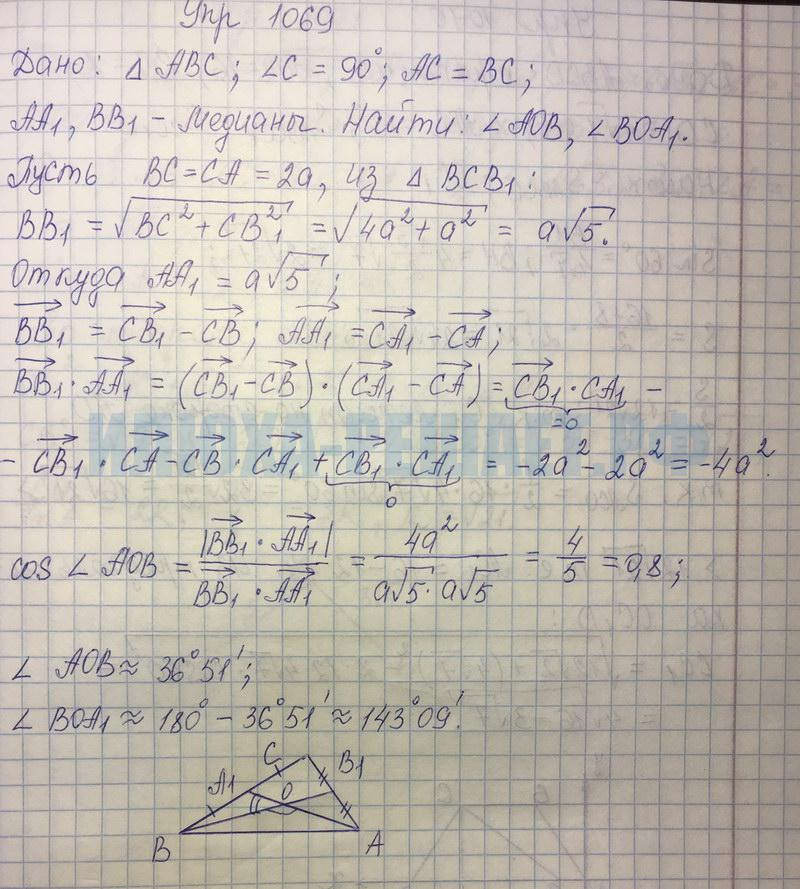 Упр 1069
Дано: △ ABC; ∠C = 90°; AC = BC;
AA₁, BB₁ – медианы. Найти: ∠AOB, ∠BOA₁.
Пусть BC = CA = 2a, из △ BCB₁:
BB₁ = √(BC² + CB₁²) = √(4a² + a²) = a√5.
Откуда AA₁ = a√5;
BB₁ = CB₁ – CB; AA₁ = CA₁ – CA;
BB₁ · AA₁ = (CB₁ – CB) · (CA₁ – CA) = CB₁ · CA₁ –
=0
– CB₁ · CA – CB · CA₁ + CB₁ · CA₁ = –2a² – 2a² = –4a².
0
cos ∠ AOB = |BB₁ · AA₁| / BB₁ · AA₁ = 4a² / a√5 · a√5 = 4/5 = 0,8;
∠ AOB ≈ 36°51′;
∠ BOA₁ ≈ 180° – 36°51′ ≈ 143°09′.
C B₁
A₁ O
B A